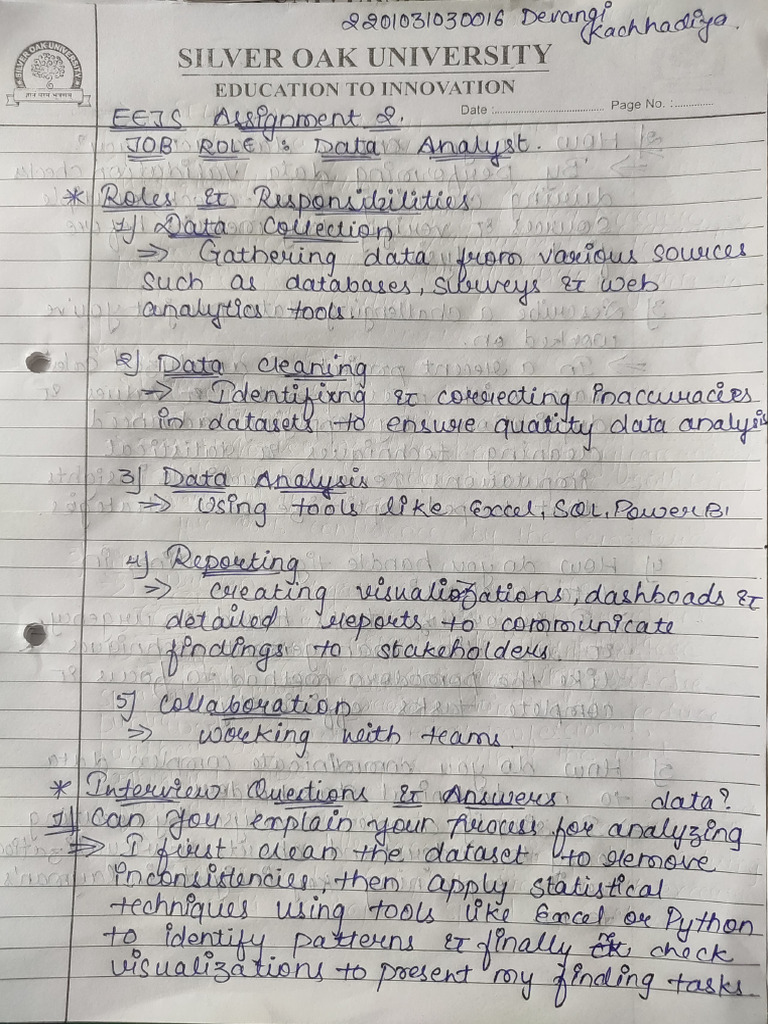 2201031030016 Devangi
Kachhadiya.
SILVER OAK UNIVERSITY
EDUCATION TO INNOVATION
Date : Page No. :
EEJS Assignment 2.
JOB ROLE : Data Analyst.
* Roles & Responsibilities
1) Data Collection
⇒ Gathering data from various sources
such as databases, surveys & web
analytics tools.
2) Data cleaning
⇒ Identifixng & correcting inaccuracies
in datasets to ensure quatity data analysis
3) Data Analysis
⇒ Using tools like Excel, SQL, PowerBI
4) Reporting
⇒ creating visualizations, dashboads &
detailed reports to communicate
findings to stakeholders.
5) Collaboration
⇒ working with teams.
* Interview Questions & Answers data?
1) Can you explain your process for analyzing
⇒ I first clean the dataset to remove
inconsistencies, then apply statistical
techniques using tools like Excel or Python
to identify patterns & finally check
visualizations to present my finding tasks.